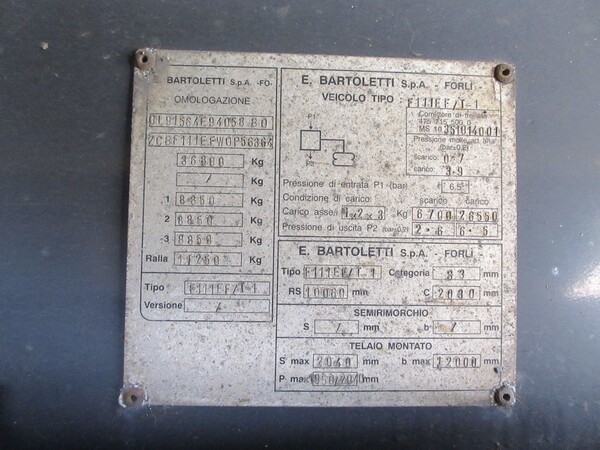 E. BARTOLETTI S.p.A. -FO-
OMOLOGAZIONE
36800 Kg
/ Kg
1 8850 Kg
2 8850 Kg
-3 8850 Kg
Ralla 11250 Kg
Tipo F111EF/T-1
Versione /
E. BARTOLETTI S.p.A. - FORLI'-
VEICOLO TIPO : F111EF/T-1
Correttore di frenata
475 715 500 0
MS 10 351014001
P1
P2
scarico: 0.7
carico: 3.9
Pressione di entrata P1 (bar) 6.5
Condizione di carico: scarico carico
Carico asse/i 1x2x3 Kg 6700 26550
Pressione di uscita P2 2.6 6.5
E. BARTOLETTI S.p.A. - FORLI'-
Tipo F111EF/T-1 Categoria 83 mm
RS 10060 mm C 2080 mm
SEMIRIMORCHIO
S / mm b / mm
TELAIO MONTATO
S' max 2040 mm b max 12000 mm
P max mm